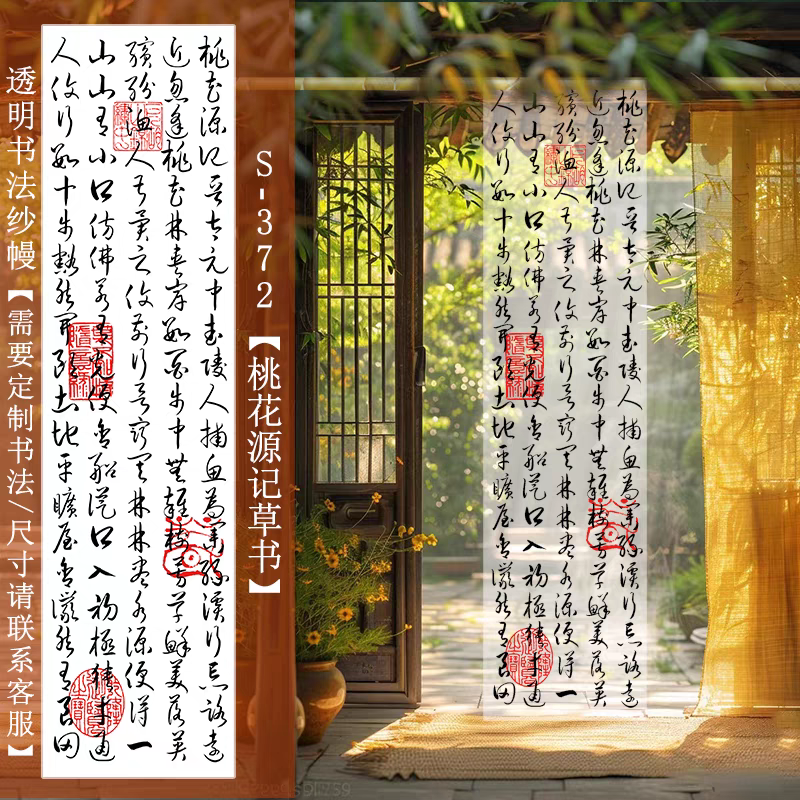 透明书法纱幔【需要定制书法/尺寸请联系客服】
桃花源记晋太元中武陵人捕鱼为业缘溪行忘路之远
近忽逢桃花林夹岸数百步中无杂树芳草鲜美落英
缤纷渔人甚异之复前行欲穷其林林尽水源便得一
山山有小口仿佛若有光便舍船从口入初极狭才通
人复行数十步豁然开朗土地平旷屋舍俨然有良田
S-372【桃花源记草书】
桃花源记晋太元中武陵人捕鱼为业缘溪行忘路之远
近忽逢桃花林夹岸数百步中无杂树芳草鲜美落英
缤纷渔人甚异之复前行欲穷其林林尽水源便得一
山山有小口仿佛若有光便舍船从口入初极狭才通
人复行数十步豁然开朗土地平旷屋舍俨然有良田